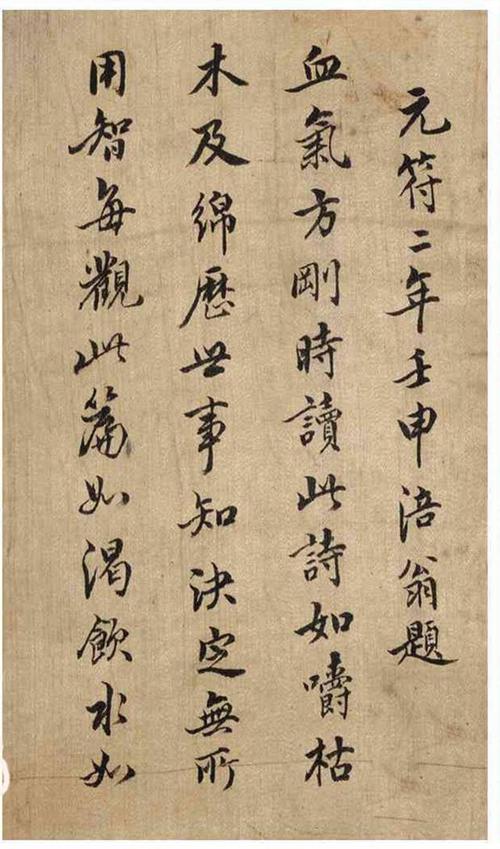 元符二年壬申涪翁題
血氣方剛時讀此詩如嚼枯
木及綿歷世事知決定無所
用智每觀此篇如渴飲水如